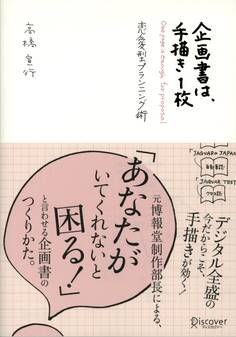 企画書は、
手描き1枚
One page is enough for proposal
恋愛型プランニング術
高橋宣行
「JAGUAR in JAPAN」
JAGUAR TEST
デジタル全盛の
今だからこそ、
手描きが効く！
元博報堂制作部長による、
「あなたが
いてくれないと
困る！」
と言わせる企画書の
つくりかた。
Discover
ディスカヴァー